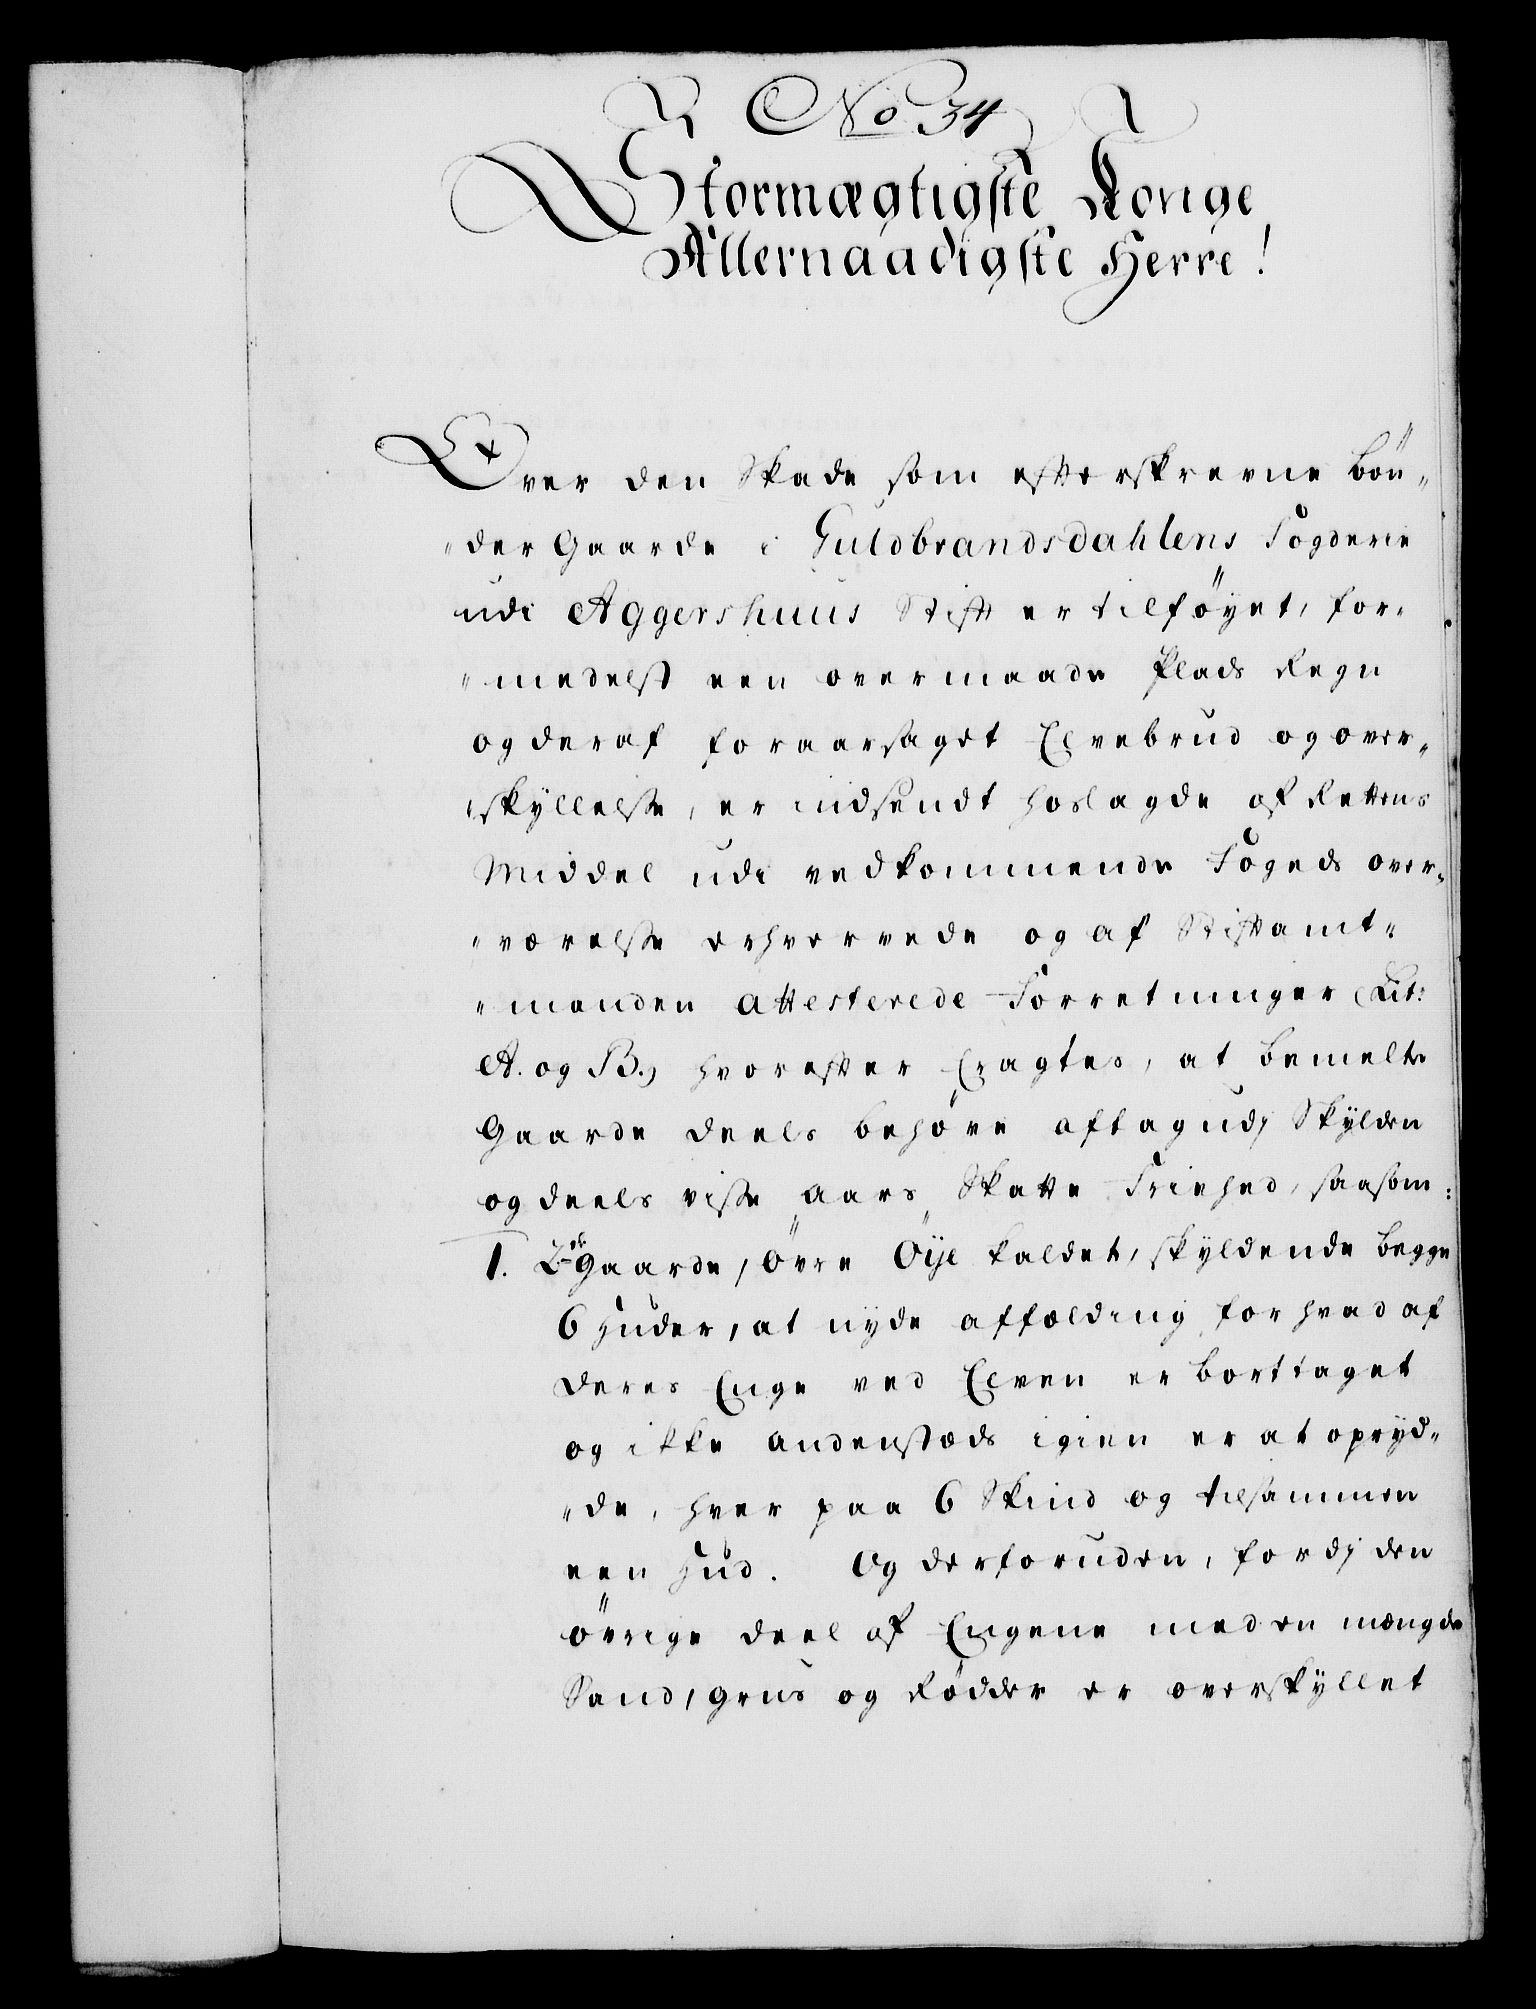 No 34
Stormægtigste Konge
Allernaadigste Herre!
Over den Skade som efterskrevne Bön„
„der Gaarde i Guldbrandsdahlens Fogderie
udi Aggershuus Stift er tilföyet, for„
„medelst een overmaade Plads Regn
og deraf foraarsaget Elvebrud og over„
„skyllelse, er indsendt hoslagde af Rettens
Middel udi vedkommende Fogeds over„
„værelse erhvervede og af Stiftamt„
„manden attesterede Forretninger (Lit:
A. og B.) hvorefter Eragtes, at bemelte
Gaarde deels behöve aftag udj Skylden
og deels visse Aars Skatte Friehed, saasom:
1. 2de Gaarde, Övre Öije kaldet, skyldende begge
6 Huder, at nyde affælding for hvad af
deres Enge ved Elven er borttaget
og ikke andenstæds igien er at opryd„
„de, hver paa 6 Skind og tilsammen
een Hud. Og derforuden, fordj den
övrige deel af Engene med en mængde
Sand, Grus og Rödder er overskyllet